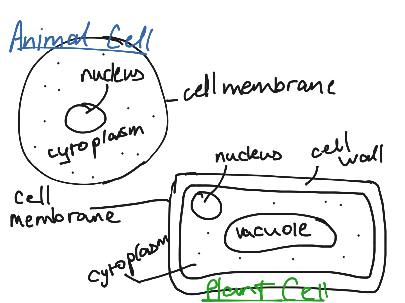 Animal Cell
nucleus
cell membrane
cytroplasm
nucleus
cell wall
cell
membrane
vacuole
cytroplasm
Plant Cell